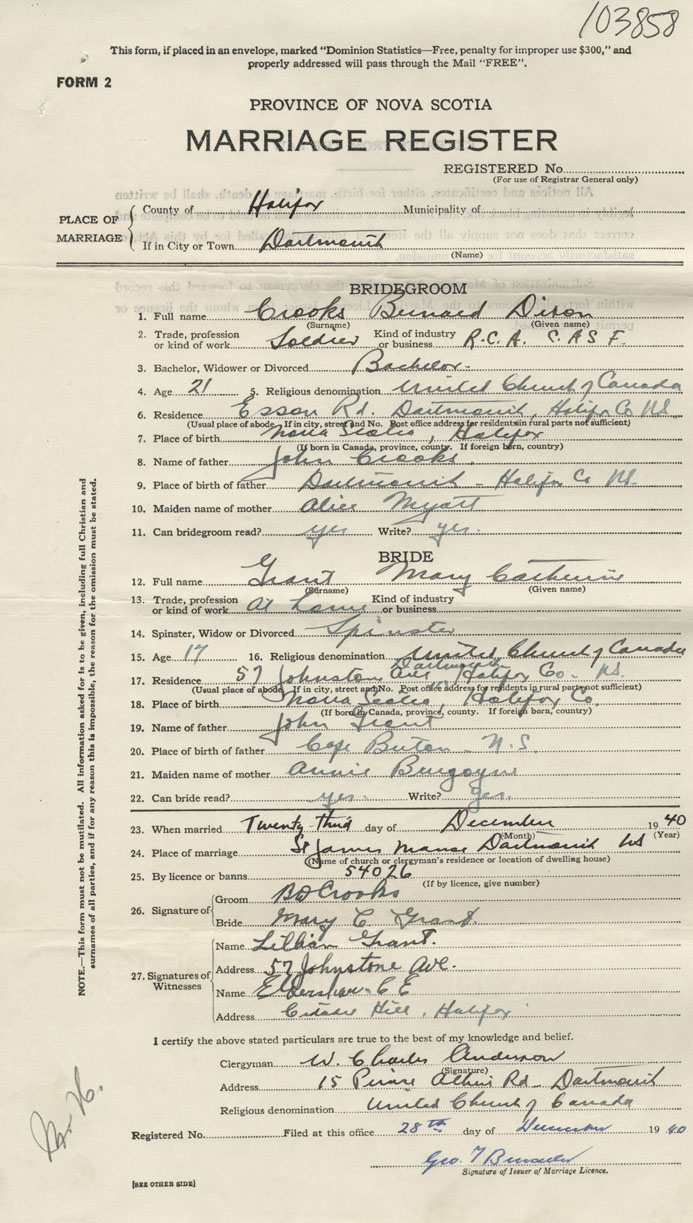 103858
This form, if placed in an envelope, marked "Dominion Statistics—Free, penalty for improper use $300," and
properly addressed will pass through the Mail "FREE".
FORM 2
PROVINCE OF NOVA SCOTIA
MARRIAGE REGISTER
REGISTERED No.
(For use of Registrar General only)
PLACE OF MARRIAGE
County of Halifax Municipality of
If in City or Town Dartmouth
(Name)
BRIDEGROOM
1. Full name Crooks Bernard Dixon
(Surname) (Given name)
2. Trade, profession or kind of work Soldier Kind of industry or business R.C.A. C.A.S.F.
3. Bachelor, Widower or Divorced Bachelor
4. Age 21 5. Religious denomination United Church of Canada
6. Residence Esson Rd. Dartmouth, Halifax Co NS
(Usual place of abode. If in city, street and No. Post office address for residents in rural parts not sufficient)
7. Place of birth Nova Scotia, Halifax
(If born in Canada, province, county. If foreign born, country)
8. Name of father John Crooks
9. Place of birth of father Dartmouth - Halifax Co NS.
10. Maiden name of mother Alice Myatt
11. Can bridegroom read? yes Write? yes.
BRIDE
12. Full name Grant Mary Catherine
(Surname) (Given name)
13. Trade, profession or kind of work At home Kind of industry or business
14. Spinster, Widow or Divorced Spinster
15. Age 17 16. Religious denomination United Church of Canada
Dartmouth
17. Residence 57 Johnston Ave Halifax Co. NS.
(Usual place of abode. If in city, street and No. Post office address for residents in rural parts not sufficient)
18. Place of birth Nova Scotia, Halifax Co.
(If born in Canada, province, county. If foreign born, country)
19. Name of father John Grant
20. Place of birth of father Cape Breton N.S.
21. Maiden name of mother Annie Burgoyne
22. Can bride read? yes Write? yes.
23. When married Twenty-third day of December 1940
(Month) (Year)
24. Place of marriage St James Manse Dartmouth NS
(Name of church or clergyman's residence or location of dwelling house)
25. By licence or banns 54026
(If by licence, give number)
26. Signature of
Groom BD Crooks
Bride Mary C Grant
27. Signatures of Witnesses
Name Lillian Grant.
Address 57 Johnstone Ave.
Name C E
Address Citadel Hill, Halifax
I certify the above stated particulars are true to the best of my knowledge and belief.
Clergyman W. Charles Anderson
(Signature)
Address 15 Prince Rd - Dartmouth
Religious denomination United Church of Canada
Registered No. Filed at this office 28th day of December 1940
Geo. T
Signature of Issuer of Marriage Licence.
[SEE OTHER SIDE]
NOTE.—This form must not be mutilated. All information asked for is to be given, including full Christian and
surnames of all parties, and if for any reason this is impossible, the reason for the omission must be stated.